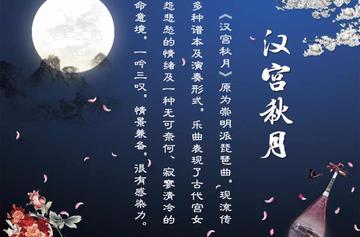 汉宫秋月
《汉宫秋月》原为崇明派琵琶曲，现流传
多种谱本及演奏形式，乐曲表现了古代宫女
怨悲愁的情绪及一种无可奈何、寂寥清冷的
命意境，一吟三叹，情景兼备，很有感染力。